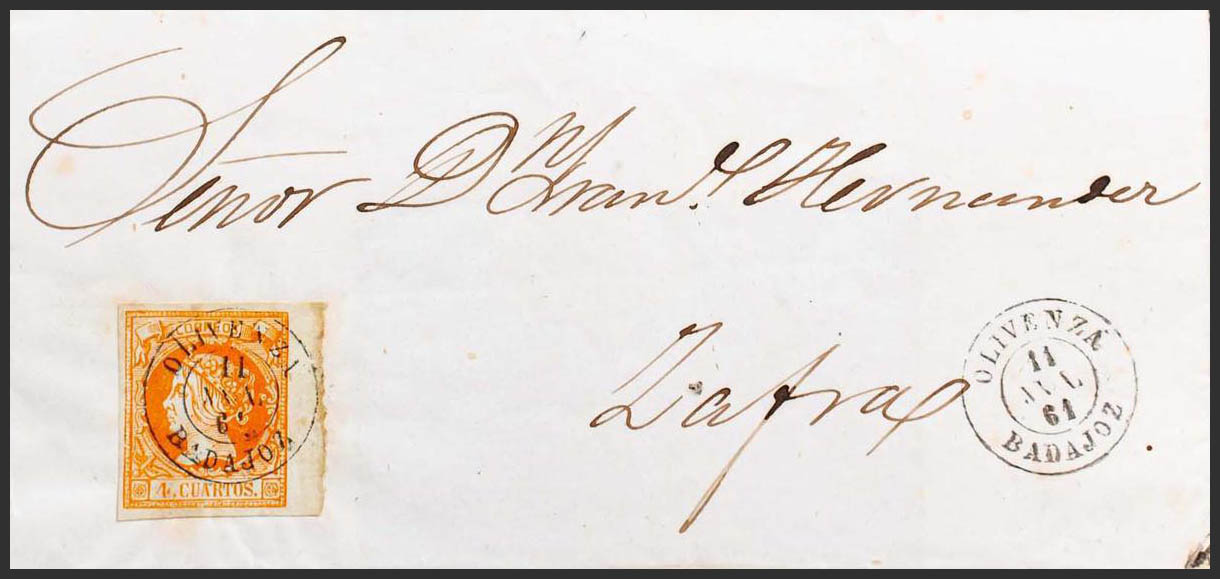 Señor D.n Juan Hernandez
Zafra
CORREOS
4 CUARTOS.
OLIVENZA
11
JUL.
6
BADAJOZ
OLIVENZA
11
JUL.
61
BADAJOZ